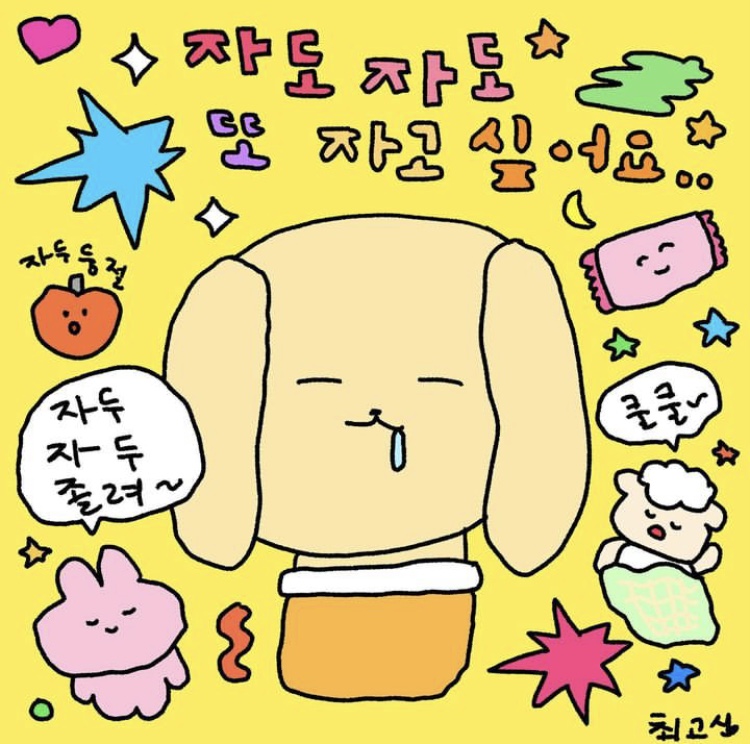 자도 자도
또 자고 싶어요..
자두둥절
자두
자두
졸려~
쿨쿨~
최고심